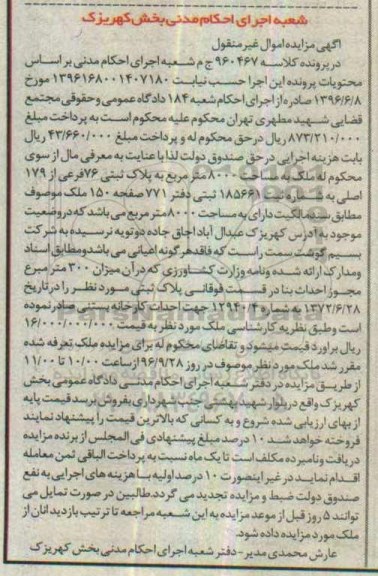 شعبه اجرای احکام مدنی بخش کهریزک
اگهی مزایده اموال غیر منقول
در پرونده کلاسه ۹۶۰۴۶۷ ج م شعبه اجرای احکام مدنی بر اساس
محتویات پرونده این اجرا حسب نیابت ۱۳۹۶۱۶۸۰۰۱۴۰۷۱۸۰ مورخ
۱۳۹۶/۶/۸ صادره از اجرای احکام شعبه ۱۸۴ دادگاه عمومی و حقوقی مجتمع
قضایی شهید مطهری تهران محکوم علیه محکوم است به پرداخت مبلغ
۸۷۳/۲۱۰/۰۰۰ ریال در حق محکوم له و پرداخت مبلغ ۴۳/۶۶۰/۰۰۰ ریال
بابت هزینه اجرایی در حق صندوق دولت لذا با عنایت به معرفی مال از سوی
محکوم له ملک به مساحت ۸۰۰۰ متر مربع به پلاک ثبتی ۷۶ فرعی از ۱۷۹
اصلی به شماره ثبت ۱۸۵۶۶۱ ثبتی دفتر ۷۷۱ صفحه ۱۵۰ ملک موصوف
مطابق سند مالکیت دارای به مساحت ۸۰۰۰ متر مربع می باشد که در وضعیت
موجود به ادرس کهریزک عبدال اباد اجاق جاده دوتویه نرسیده به شرکت
بسیم گوشت سمت راست که فاقد هرگونه اعیانی می باشد و مطابق اسناد
ومدارک ارائه شده و نامه وزارت کشاورزی که در آن میزان ۳۰۰ متر مربع
مجوز احداث بنا در قسمت فوقانی پلاک ثبتی مورد نظر را در تاریخ
۱۳۷۲/۶/۲۸ به شماره ۱۲۹۴۰/۴۰ جهت احداث کارخانه بستنی صادر نموده
است و طبق نظریه کارشناسی ملک مورد نظر به قیمت ۱۶/۰۰۰/۰۰۰/۰۰۰
ریال براورد قیمت میشود و تقاضای محکوم له برای مزایده ملک تعرفه شده
مقرر شد ملک مورد نظر موصوف در روز ۹۶/۹/۲۸ از ساعت ۱۰/۰۰ تا ۱۱/۰۰
از طریق مزایده در دفتر شعبه اجرای احکام مدنی دادگاه عمومی بخش
کهریزک واقع در بلوار شهید بهشتی جنب شهرداری بفروش برسد قیمت پایه
از بهای ارزیابی شده شروع و به کسانی که بالاترین قیمت را پیشنهاد نمایند
فروخته خواهد شد ۱۰ درصد مبلغ پیشنهادی فی المجلس از برنده مزایده
دریافت و نامبرده مکلف است تا یک ماه نسبت به پرداخت الباقی ثمن معامله
اقدام نماید در غیر اینصورت ۱۰ درصد اولیه با هزینه های اجرایی به نفع
صندوق دولت ضبط و مزایده تجدید می گردد. طالبین در صورت تمایل می
توانند ۵ روز قبل از موعد مزایده به این شعبه مراجعه تا ترتیب بازدید انان از
ملک مورد مزایده داده شود.
عارش محمدی مدیر - دفتر شعبه اجرای احکام مدنی بخش کهریزک